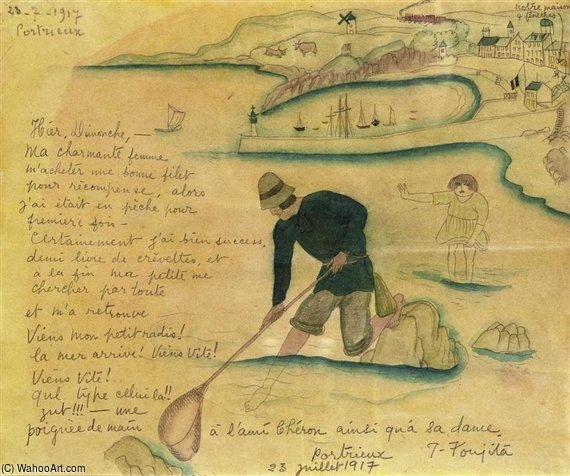 23-7-1917
Portrieux
Notre maison
4 fenêtres
Hier, Dimonche, —
Ma charmante femme
m'acheter une bonne filet
pour récompense, alors
j'ai était en pèche pour
première fois —
Certainement j'ai bien success,
demi livre de crevettes, et
a la fin ma petite me
chercher partoute
et m'a retrouve
Viens mon petit radis!
la mer arrive! Viens Vite!
Viens Vite!
quel type celui là!!
zut!!! — une
poignée de main à l'ami Chéron ainsi quá sa dame.
Portrieux T-Foujita
23 juillet 1917
© WahooArt.com